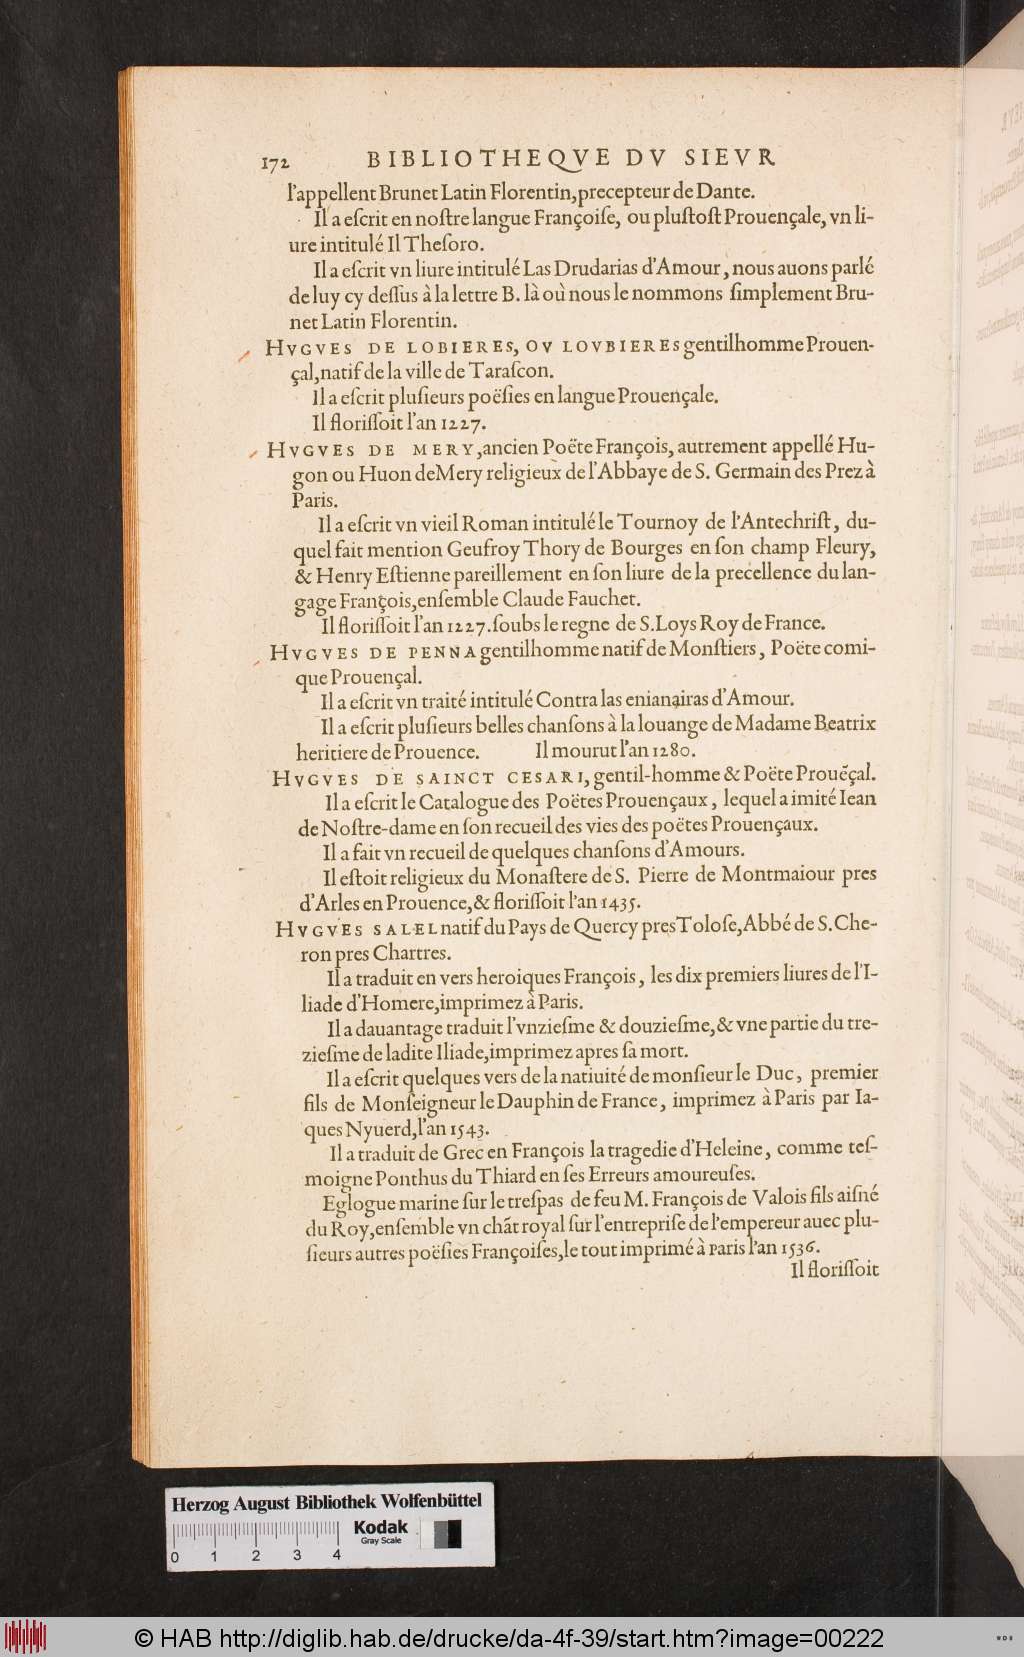 172 BIBLIOTHEQVE DV SIEVR
l'appellent Brunet Latin Florentin, precepteur de Dante.
Il a eſcrit en noſtre langue Françoiſe, ou pluſtoſt Prouençale, vn li-
ure intitulé Il Theſoro.
Il a eſcrit vn liure intitulé Las Drudarias d'Amour, nous auons parlé
de luy cy deſſus à la lettre B. là où nous le nommons ſimplement Bru-
net Latin Florentin.
HVGVES DE LOBIERES, OV LOVBIERES gentilhomme Prouen-
çal, natif de la ville de Taraſcon.
Il a eſcrit pluſieurs poëſies en langue Prouençale.
Il floriſſoit l'an 1227.
HVGVES DE MERY, ancien Poëte François, autrement appellé Hu-
gon ou Huon de Mery religieux de l'Abbaye de S. Germain des Prez à
Paris.
Il a eſcrit vn vieil Roman intitulé le Tournoy de l'Antechriſt, du-
quel fait mention Geufroy Thory de Bourges en ſon champ Fleury,
& Henry Eſtienne pareillement en ſon liure de la precellence du lan-
gage François, enſemble Claude Fauchet.
Il floriſſoit l'an 1227. ſoubs le regne de S. Loys Roy de France.
HVGVES DE PENNA gentilhomme natif de Monſtiers, Poëte comi-
que Prouençal.
Il a eſcrit vn traité intitulé Contra las enianairas d'Amour.
Il a eſcrit pluſieurs belles chanſons à la louange de Madame Beatrix
heritiere de Prouence. Il mourut l'an 1280.
HVGVES DE SAINCT CESARI, gentil-homme & Poëte Prouẽçal.
Il a eſcrit le Catalogue des Poëtes Prouençaux, lequel a imité Iean
de Noſtre-dame en ſon recueil des vies des poëtes Prouençaux.
Il a fait vn recueil de quelques chanſons d'Amours.
Il eſtoit religieux du Monaſtere de S. Pierre de Montmaiour pres
d'Arles en Prouence, & floriſſoit l'an 1435.
HVGVES SALEL natif du Pays de Quercy pres Toloſe, Abbé de S. Che-
ron pres Chartres.
Il a traduit en vers heroiques François, les dix premiers liures de l'I-
liade d'Homere, imprimez à Paris.
Il a dauantage traduit l'vnzieſme & douzieſme, & vne partie du tre-
zieſme de ladite Iliade, imprimez apres ſa mort.
Il a eſcrit quelques vers de la natiuité de monſieur le Duc, premier
fils de Monſeigneur le Dauphin de France, imprimez à Paris par Ia-
ques Nyuerd, l'an 1543.
Il a traduit de Grec en François la tragedie d'Heleine, comme teſ-
moigne Ponthus du Thiard en ſes Erreurs amoureuſes.
Eglogue marine ſur le treſpas de feu M. François de Valois fils aiſné
du Roy, enſemble vn chãt royal ſur l'entrepriſe de l'empereur auec plu-
ſieurs autres poëſies Françoiſes, le tout imprimé à Paris l'an 1536.
Il floriſſoit
Herzog August Bibliothek Wolfenbüttel
Kodak
Gray Scale
0 1 2 3 4
© HAB http://diglib.hab.de/drucke/da-4f-39/start.htm?image=00222